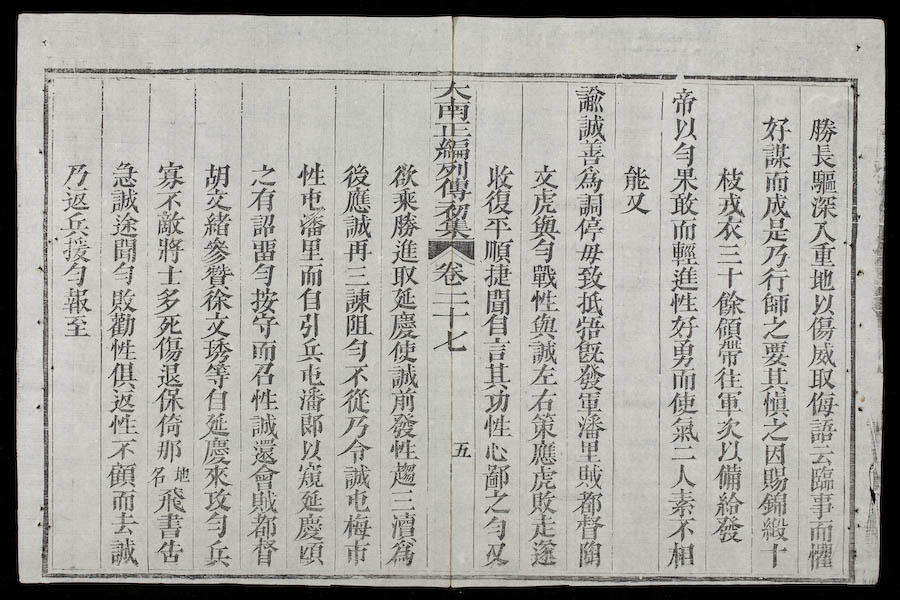 勝長驅深入重地以傷威取侮語云臨事而懼
好謀而成是乃行師之要其慎之因賜錦緞十
枝戎衣三十餘領帶往軍次以備給發
帝以勻果敢而輕進性好勇而使氣二人素不相
能又
諭誠善爲調停毋致抵牾旣發軍潘里賊都督
文虎與勻戰性與誠左右策應虎敗走遂
收復平順捷聞自言其功性心鄙之勻又
大南正編列傳初集 卷二十七 五
欲乘勝進取延慶使誠前發性趨三瀆爲
後應誠再三諫阻勻不從乃令誠屯梅市
性屯潘里而自引兵屯潘郞以窺延慶頃
之有詔畱勻按守而召性誠還會賊都督
胡文緒參贊徐文琇等自延慶來攻勻兵
寡不敵將士多死傷退保倚那地名飛書告
急誠途聞勻敗勸性俱返性不顧而去誠
乃返兵援勻報至